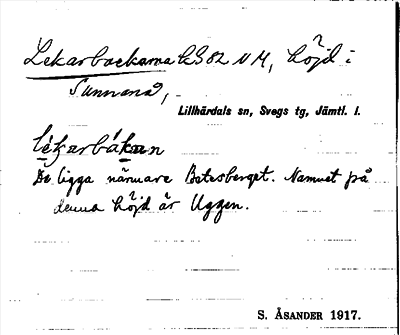 Lekarbackarna kS 82 NM, höjd i
Sunnanå,
Lillhärdals sn, Svegs tg, Jämtl. l.
lékarbákan
De ligga närmare Batesberget. Namnet på
denna höjd är Uggen.
S. ÅSANDER 1917.